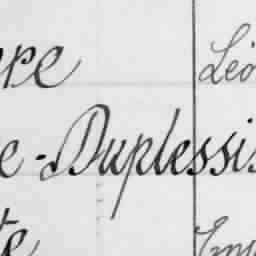 re Léo
e-Duplessis
te